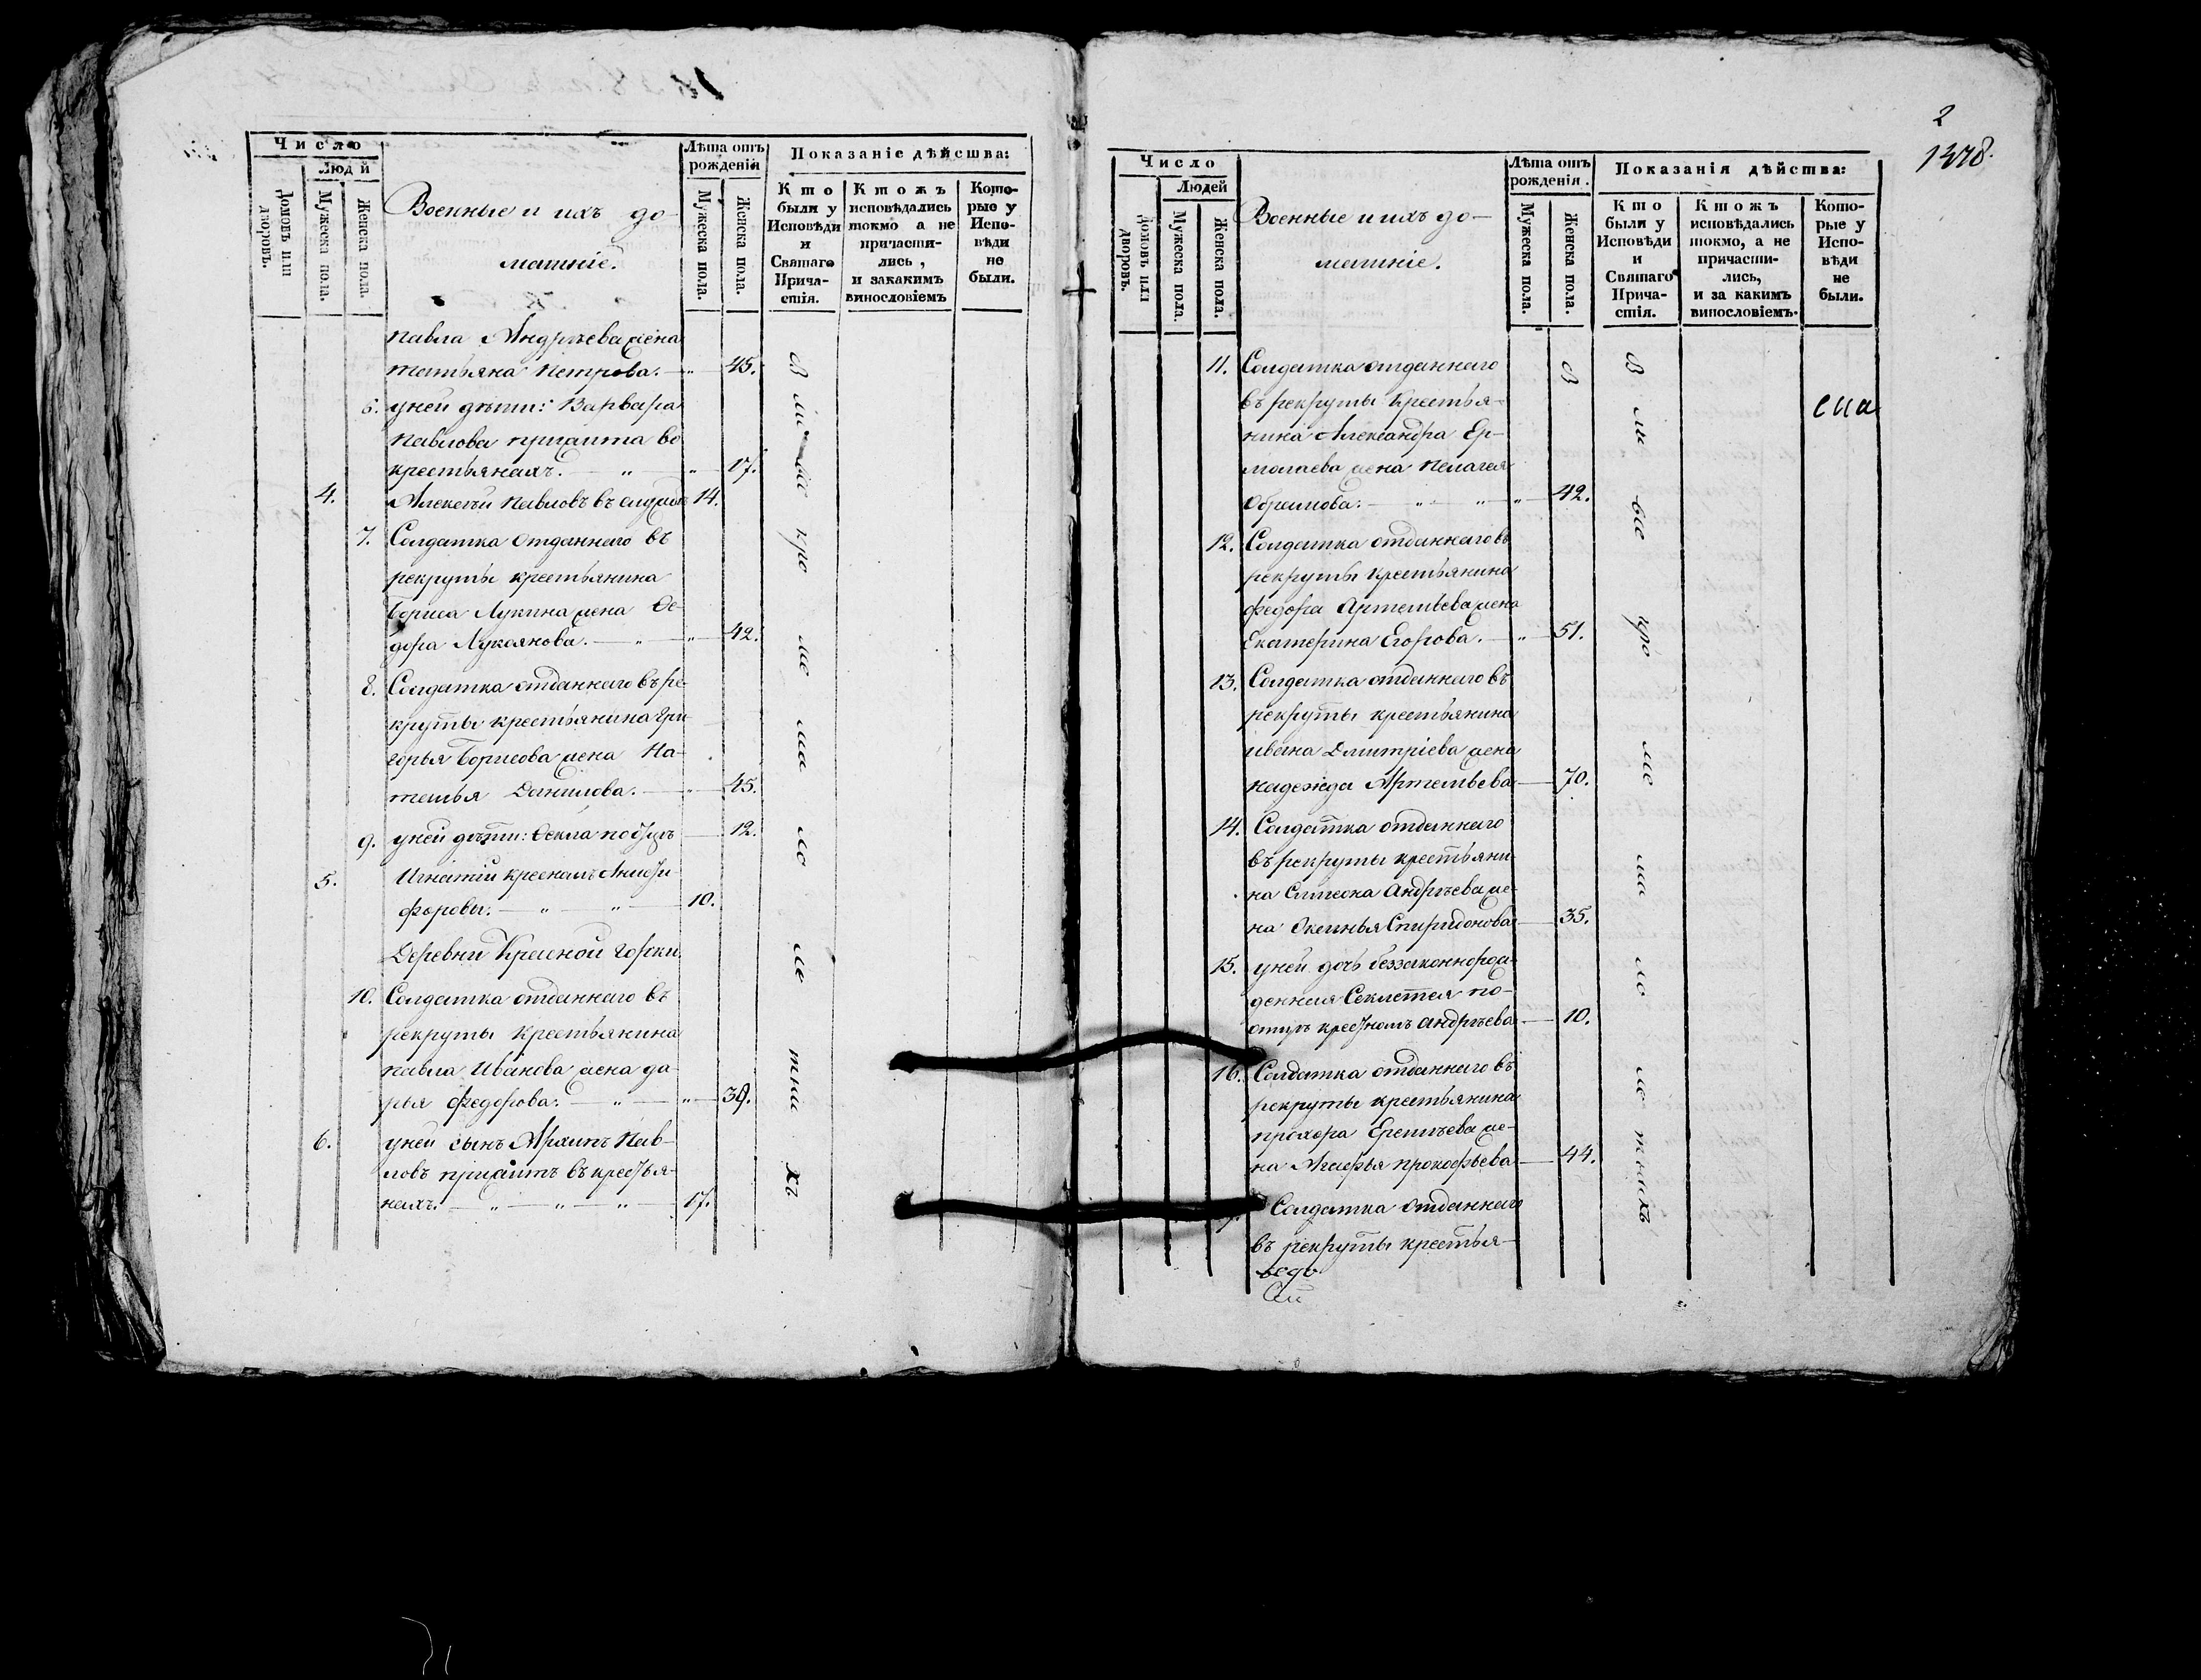 Число
Людй
Домовъ или дворовъ.
Мужеска пола.
Женска пола.
Военные и ихъ до-
машніе.
Лѣта отъ рожденія
Мужеска пола.
Женска пола.
Показаніе дѣйсшва:
Кто были у Исповѣди и Святаго Прича-стія.
Ктожъ исповѣдались токмо а не причасти-лись, и закакимъ винословіемъ
Кото-рые у Испо-вѣди не были.
Павла Андрѣева жена
Татьяна Петрова. — „ — 45.
6. у ней дѣти: Варвара
Павлова принята во
крестьянахъ. — „ — „ — 17.
4. Алексѣй Павловъ въ 14.
7. Солдатка отданнаго въ
рекруты крестьянина
Бориса Лукина жена Ѳе-
дора Лукоянова. — „ — „ — 42.
8. Солдатка отданнаго въ ре-
круты крестьянина Гри
горья Борисова жена На-
талья Данилова. — „ — 45.
9. у ней дѣти: Ѳекла 12.
5. Игнатій
форовы. — „ — „ — 10.
Деревни Красной Горки
10. Солдатка отданнаго въ
рекруты крестьянина
Павла Иванова жена Да-
рья Федорова. — „ — „ — 39.
6. у ней сынъ Архипъ Пав-
ловъ въ крестья-
нахъ. — „ — „ — „ — 17.
2
1378.
Число
Людей
Домовъ или дворовъ.
Мужеска пола.
Женска пола.
Военные и ихъ до-
машніе.
Лѣта отъ рожденія.
Мужеска пола.
Женска пола.
Показанія дѣйства:
Кто были у Исповѣди и Святаго Прича-стія.
Ктожъ исповѣдались токмо, а не причасти-лись, и за какимъ винословіемъ.
Кото-рые у Испо-вѣди не были.
11. Солдатка отданнаго
въ рекруты крестья-
нина Александра Ер-
молаева жена Пелагея
— „ — „ — „ — 42.
12. Солдатка отданнаго въ
рекруты крестьянина
Федора Артемьева жена
Екатерина Егорова. — „ — 51.
13. Солдатка отданнаго въ
рекруты крестьянина
Ивана Дмитріева жена
Надежда Артемьева — 70.
14. Солдатка отданнаго
въ рекруты крестьяни-
на Симеона Андрѣева же-
на Оксинья Спиридонова — 35.
15. у ней дочь беззаконнорож-
денная Секлетея по
отцѣ крестномъ Андрѣева — 10.
16. Солдатка отданнаго въ
рекруты крестьянина
Прохора Еремѣева же-
на Агафья Прокофьева — 44.
Солдатка отданнаго
въ рекруты крестья-